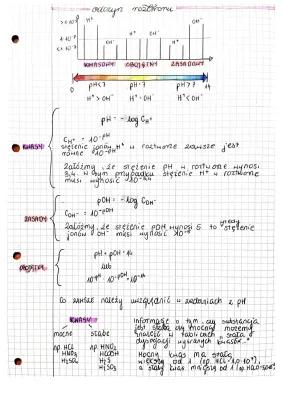 odczyn roztworu
>10⁻⁷ H⁺ OH⁻
1·10⁻⁷ H⁺ OH⁻
<10⁻⁷ OH⁻ H⁺
KWASOWY OBOJĘTNY ZASADOWY
pH<7 pH=7 pH>7
0 14
H⁺>OH⁻ H⁺=OH⁻ H⁺<OH⁻
pH = -log C_H⁺
KWASY
C_H⁺ = 10^-pH
stężenie jonów H⁺ w roztworze zawsze jest
równe 10^-pH
Załóżmy, że stężenie pH w roztworze wynosi
3,4. W tym przypadku stężenie H⁺ w roztworze
musi wynosić 10^-3,4
pOH = -log C_OH⁻
ZASADY
C_OH⁻ = 10^-pOH
Załóżmy, że stężenie pOH wynosi 5 to wtedy
jonów OH⁻ musi wynosić 10⁻⁵
pH + pOH = 14
lub
10^-pH · 10^-pOH = 10⁻¹⁴
Co jeszcze należy uwzględnić w zadaniach z pH
KWASY
mocne słabe
np. HCl np. HNO₂
HNO₃ HCOOH
H₂SO₄ H₂S
H₂SO₃
Informacje o tym, czy substancja
jest słaba czy mocna możemy
znaleźć w tablicach stałą
dysocjacji wybranych kwasów
Mocny kwas ma stałą
większą od 1 (np. HCl - 1,0·10⁷),
a słaby kwas mniejszą od 1